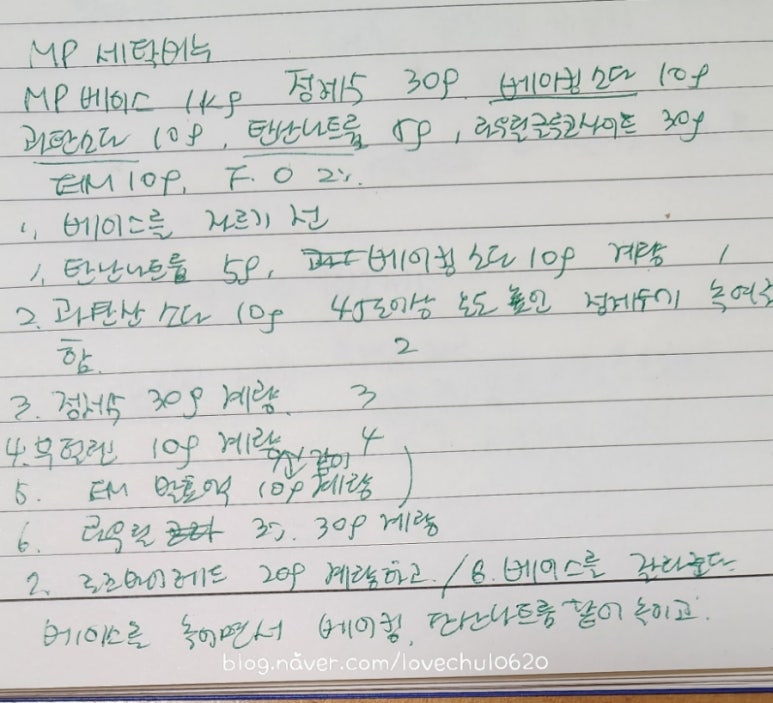 MP 세탁비누
MP 베이스 1kg 정제수 30g 베이킹소다 10g
과탄소다 10g, 탄산나트륨 5g, 라우릴글루코사이드 30g
EM 10g, F.O 2%
1, 베이스를 자르기 전
1, 탄산나트륨 5g, 베이킹소다 10g 계량 1
2. 과탄산소다 10g 45도이상 온도 높인 정제수에 녹여주
함. 2
3. 정제수 30g 계량. 3
4. 10g 계량 4
5. EM 발효액 10g 계량
6. 라우릴 3%. 30g 계량
20g 계량하고. / 베이스를 잘라준다
베이스를 녹이면서 베이킹, 탄산나트륨 같이 녹이고.
blog.naver.com/lovechul0620